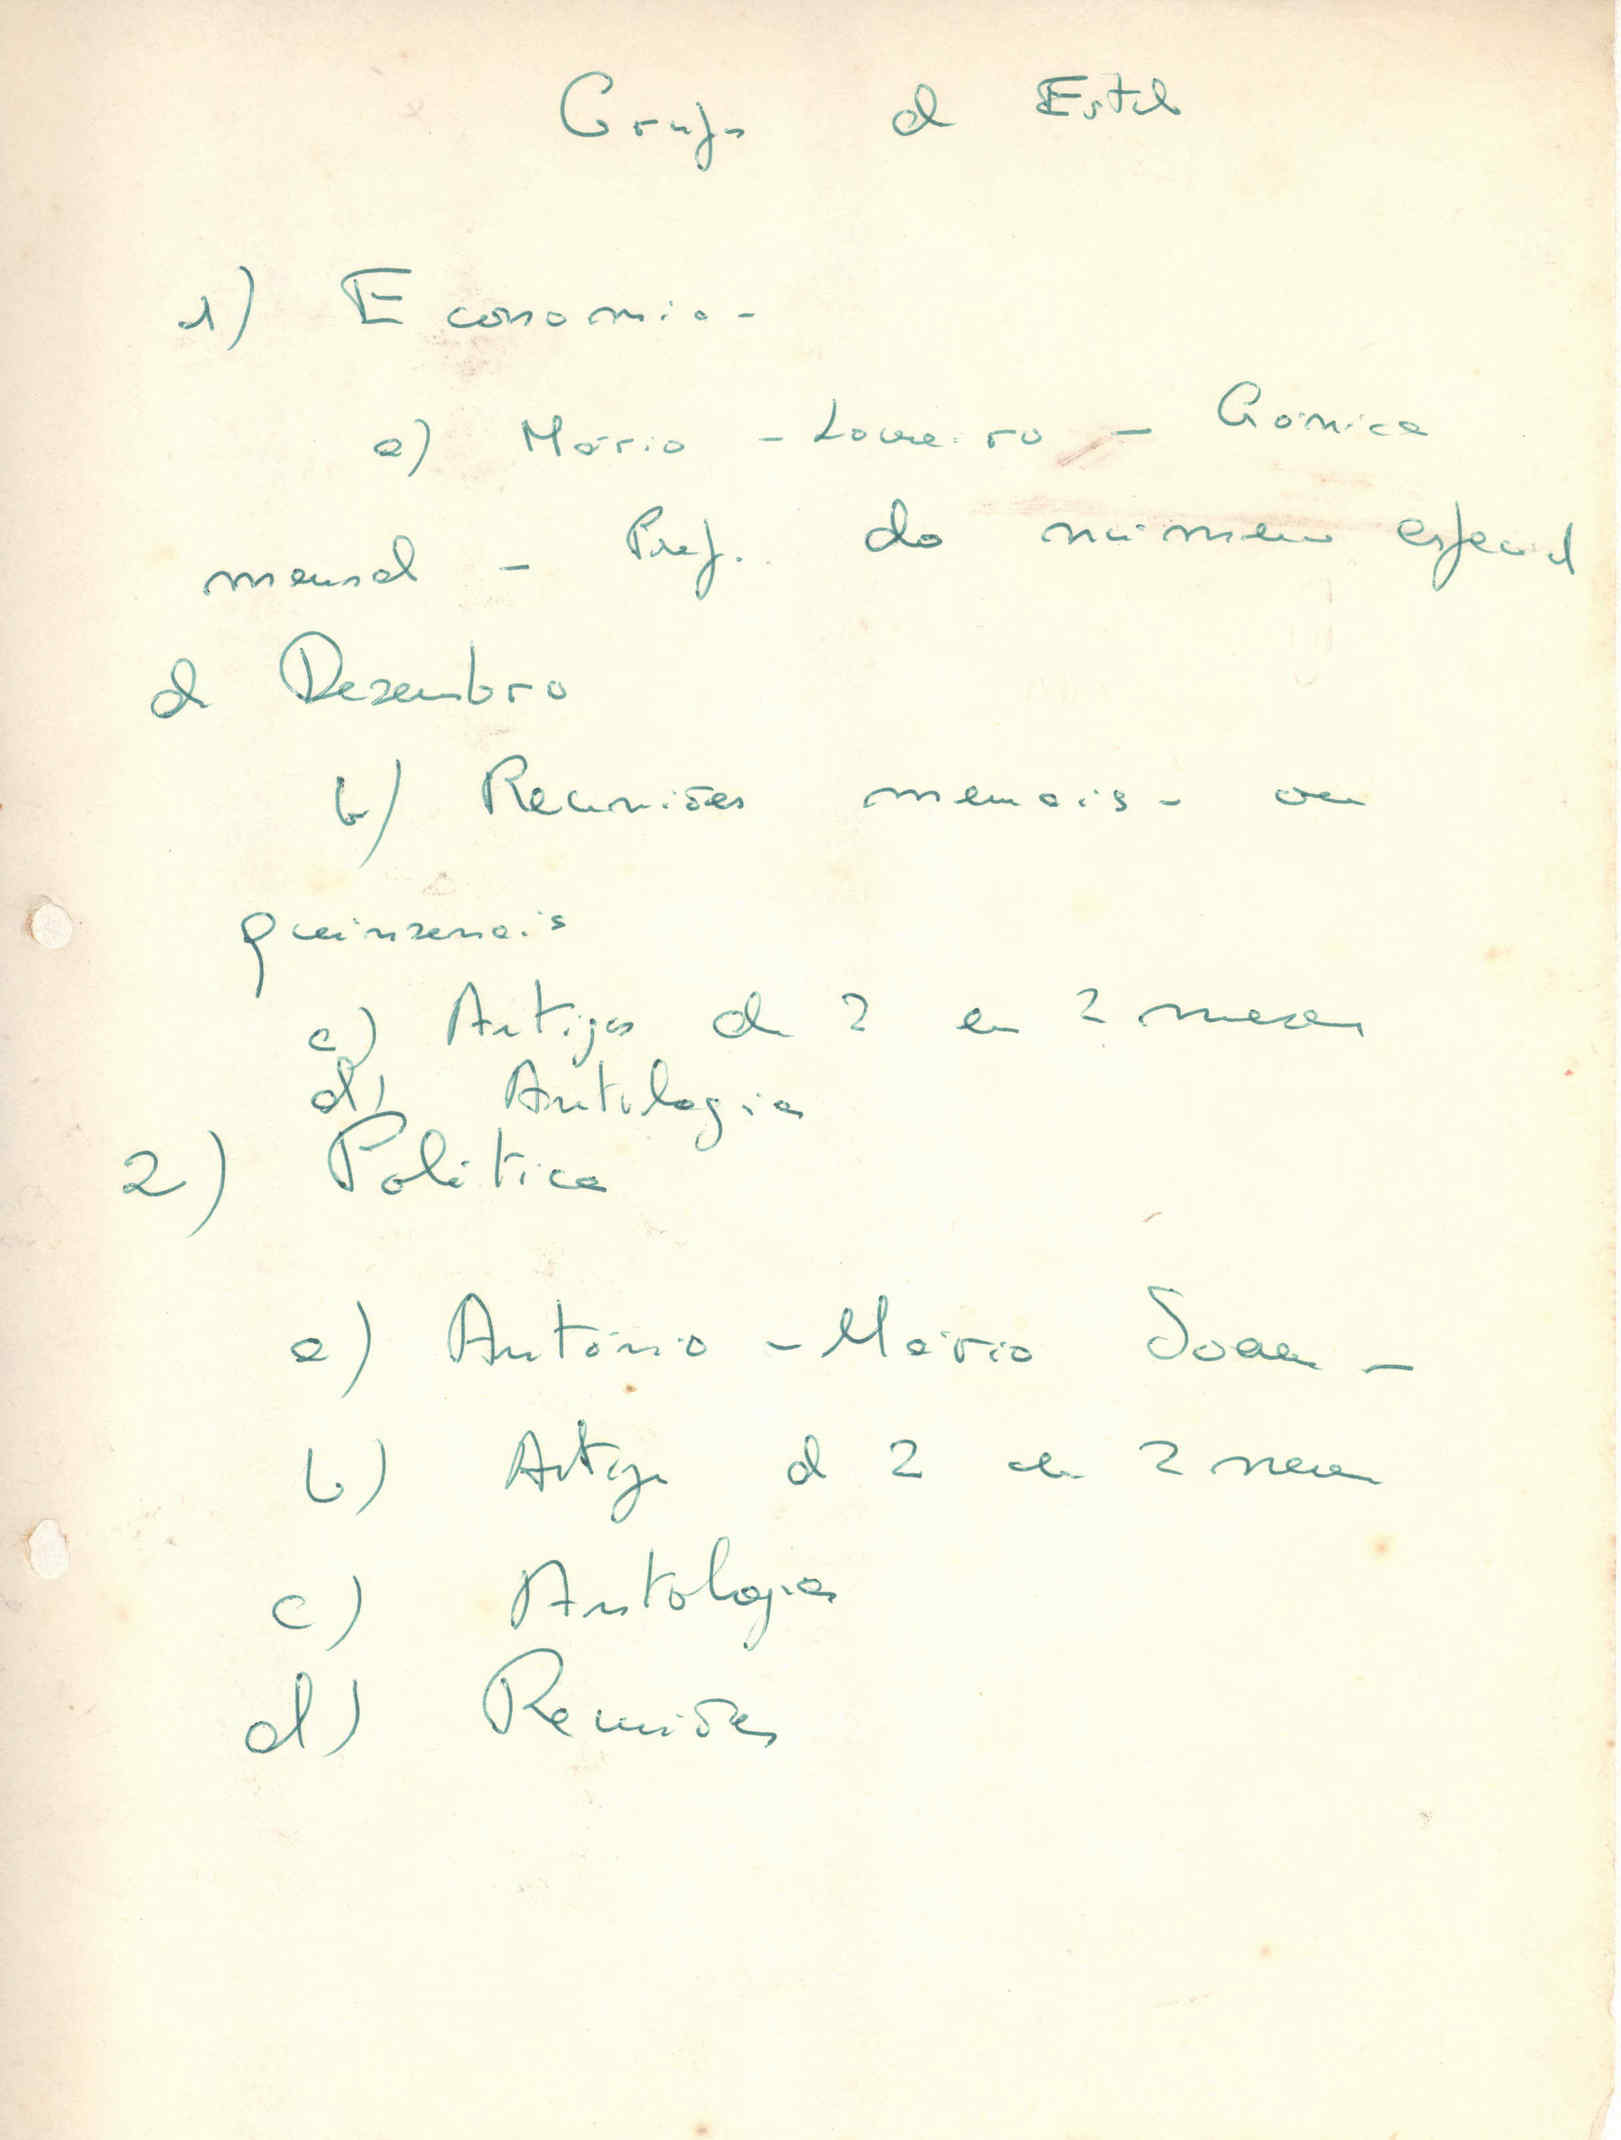 Grupo de
1) Economia -
a) Mário - Loureiro - Crónica
mensal - Prep. do número especial
de Dezembro
b) Reuniões mensais - ou
quinzenais
c) Artigos de 2 em 2 meses
d) Antologia
2) Política
a) António - Mário Soares -
b) Artigo de 2 em 2 meses
c) Antologia
d) Reuniões